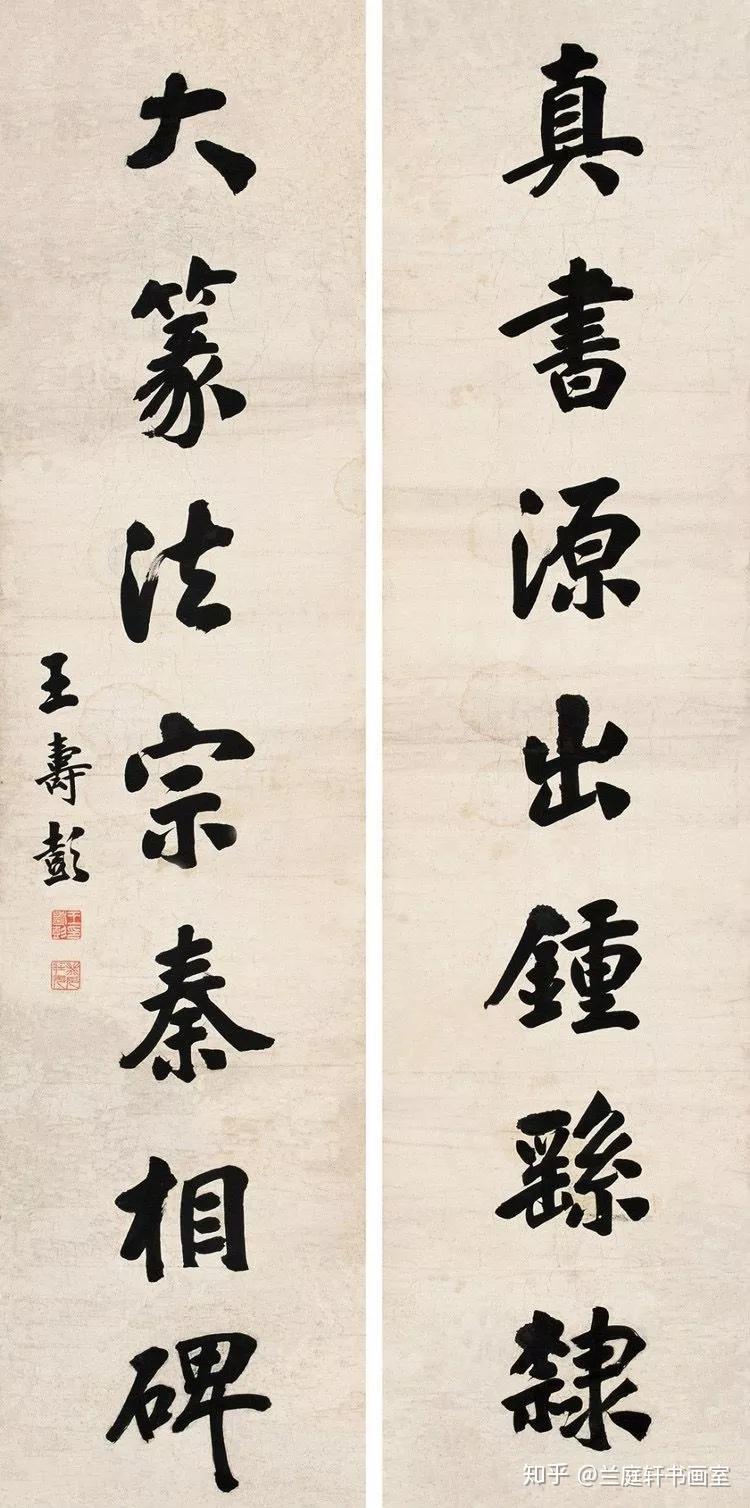 真書源出鍾繇隸
大篆法宗秦相碑
王壽彭
知乎 @兰庭轩书画室